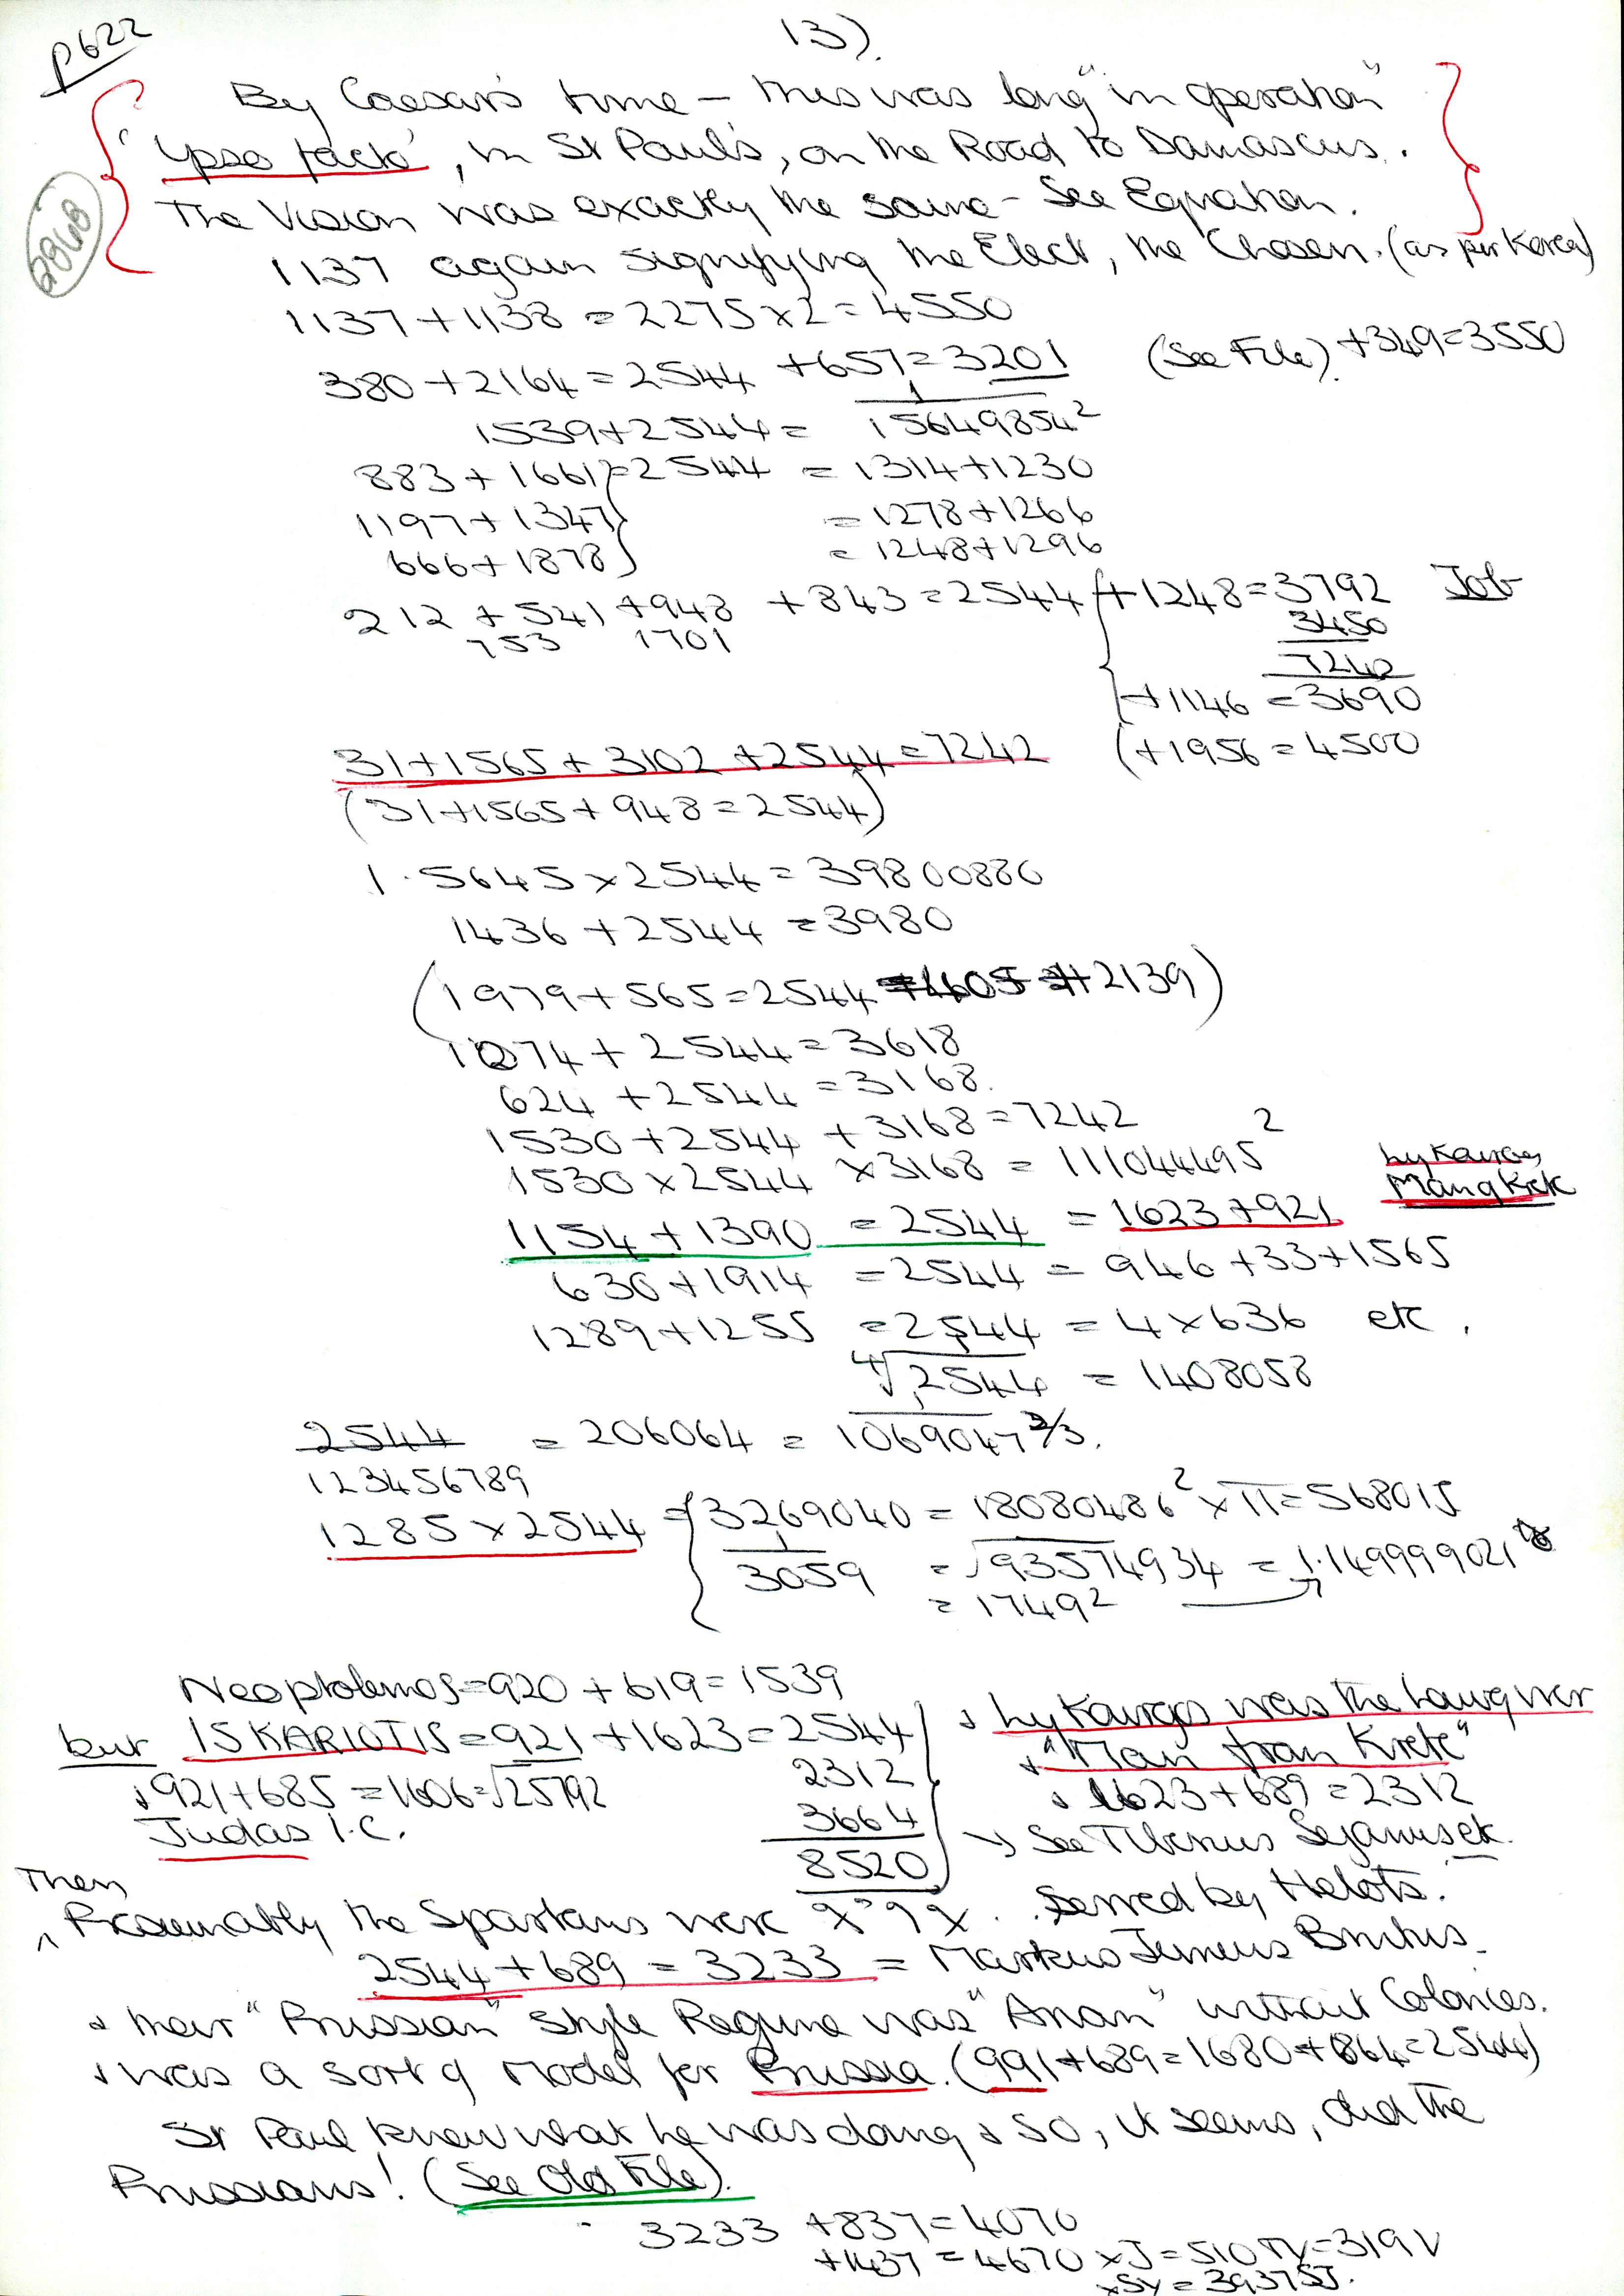 p622
13).
By Caesar's time – this was long "in operation"
'ypso facto', in St Paul's, on the Road to Damascus.
The Vision was exactly the same – See Equation.
2848
1137 again signifying the Elect, the Chosen. (as per Korea)
1137 + 1138 = 2275 x 2 = 4550
380 + 2164 = 2544 + 657 = 3201 (See File). + 349 = 3550
1539 + 2544 = 1/15649854²
883 + 1661 = 2544 = 1314 + 1230
1197 + 1347 = 1278 + 1266
666 + 1878 = 1248 + 1296
212 + 541 + 948 + 843 = 2544 + 1248 = 3792 Job
753 1701 3450
7242
+ 1146 = 3690
31 + 1565 + 3102 + 2544 = 7242 (+ 1956 = 4500
(31 + 1565 + 948 = 2544)
1.5645 x 2544 = 39800880
1436 + 2544 = 3980
(1979 + 565 = 2544 = 405 + 2139)
1074 + 2544 = 3618
624 + 2544 = 3168.
1530 + 2544 + 3168 = 7242
1530 x 2544 x 3168 = 111044495²
Lykourgos
Mang Krete
1154 + 1390 = 2544 = 1623 + 921
630 + 1914 = 2544 = 946 + 33 + 1565
1289 + 1255 = 2544 = 4 x 636 etc.
1/4√2544 = 1408058
2544/123456789 = 206064 = 1/1069047 2/3.
1285 x 2544 = 3269040 = 18080486² x π = 56801J
1/3059 = √93574934 = 1.149999021
= 1749²
Neoptolemos = 920 + 619 = 1539
but ISKARIOTIS = 921 + 1623 = 2544 & Lykourgos was the Lawgiver
2312 & "Man from Krete"
& 921 + 685 = 1606 = √25792 & 1623 + 689 = 2312
Judas I.C. 3664 → See Tiberius Sejanus etc.
8520
Then
Presumably the Spartans were Served by Helots.
2544 + 689 = 3233 = Markus Junius Brutus.
& their "Prussian" Style Regime was "Arian" without Colonies.
& was a sort of Model for Prussia. (991 + 689 = 1680 + 864 = 2544)
St Paul knew what he was doing & so, it seems, did the
Prussians! (See Old File).
3233 + 837 = 4070
+ 1437 = 4670 x J = 510 TY = 319 V
x SY = 39375J.